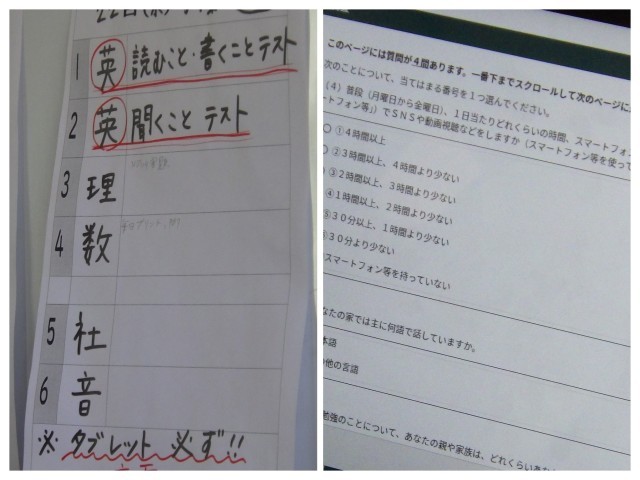 1 英 読むこと・書くことテスト
2 英 聞くこと テスト
3 理
4 数
5 社
6 音
※ タブレット 必ず!!
このページには質問が4問あります。一番下までスクロールして次のページに
次のことについて、当てはまる番号を1つ選んでください。
(4)普段(月曜日から金曜日)、1日当たりどれくらいの時間、スマートフォン
ートフォン等」)でSNSや動画視聴などをしますか(スマートフォン等を使って
①4時間以上
②3時間以上、4時間より少ない
③2時間以上、3時間より少ない
④1時間以上、2時間より少ない
⑤30分以上、1時間より少ない
30分より少ない
スマートフォン等を持っていない
なたの家では主に何語で話していますか。
本語
の他の言語
勉強のことについて、あなたの親や家族は、どれくらい